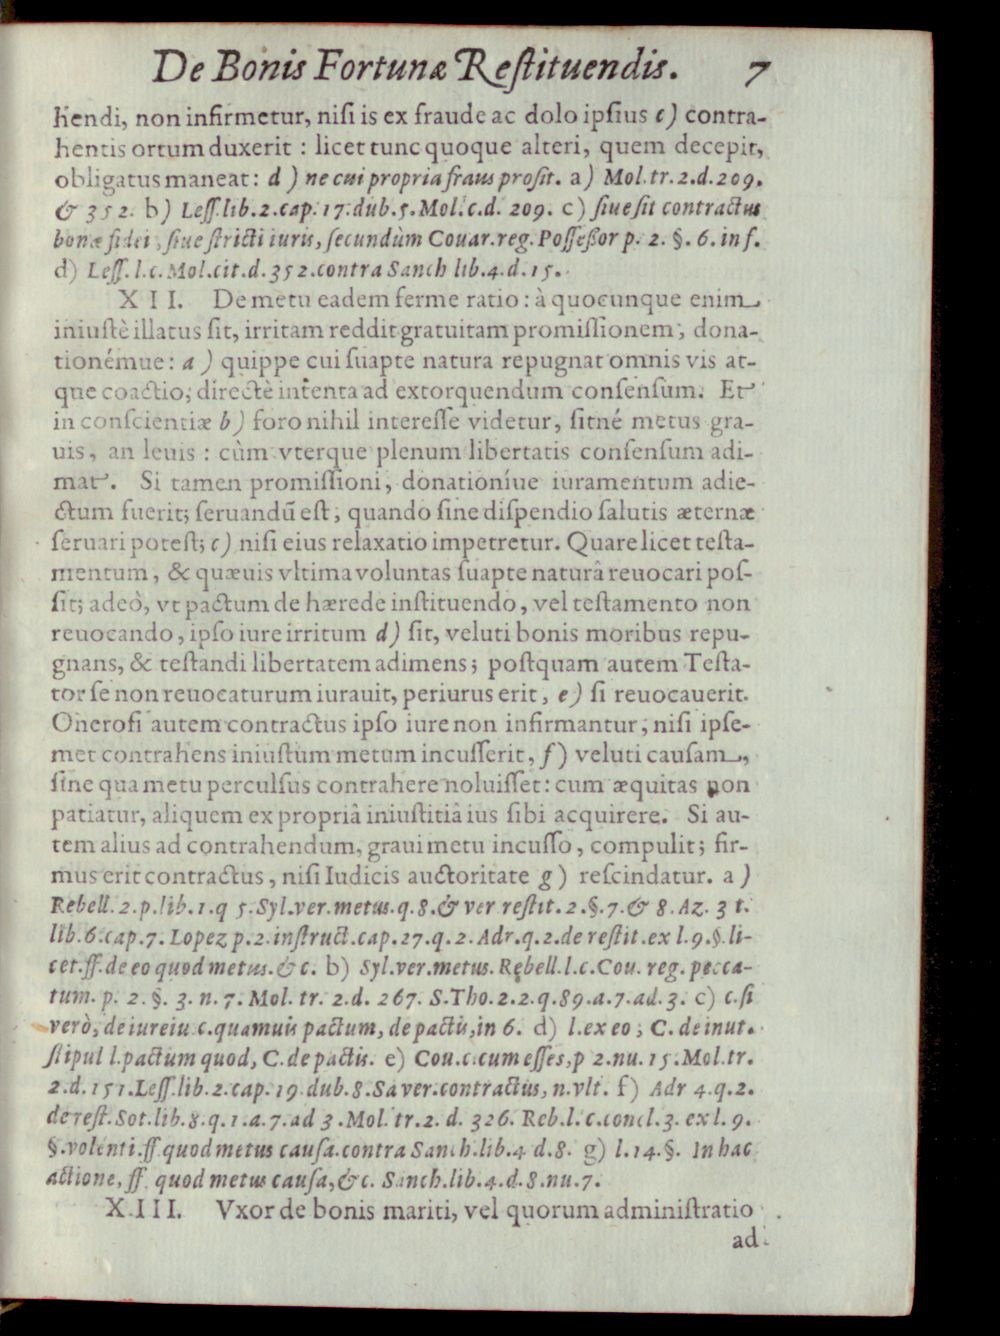 De Bonis Fortunæ Reſtituendis. 7
hendi, non infirmetur, niſi is ex fraude ac dolo ipſius c) contra-
hentis ortum duxerit : licet tunc quoque alteri, quem decepit,
obligatus maneat: d ) ne cui propria fraus proſit. a) Mol.tr.2.d.209.
& 352. b) Leſſ.lib.2.cap.17.dub.5.Mol.c.d. 209. c) ſiue ſit contractus
bonæ fidei, ſiue ſtricti iuris, ſecundùm Couar.reg. Poſſeſſor p. 2. §. 6. in f.
d) Leſſ. l. c. Mol.cit.d.352.contra Sanch lib.4.d.15.
XII. De metu eadem ferme ratio: à quocunque enim
iniuſtè illatus ſit, irritam reddit gratuitam promiſſionem, dona-
tionémue: a ) quippe cui ſuapte natura repugnat omnis vis at-
que coactio, directè intenta ad extorquendum conſenſum. Et
in conſcientiæ b) foro nihil intereſſe videtur, ſitné metus gra-
uis, an leuis : cùm vterque plenum libertatis conſenſum adi-
mat. Si tamen promiſſioni, donationíue iuramentum adie-
ctum fuerit; ſeruandũ eſt, quando ſine diſpendio ſalutis æternæ
ſeruari poteſt; c) niſi eius relaxatio impetretur. Quare licet teſta-
mentum, & quæuis vltima voluntas ſuapte naturâ reuocari poſ-
ſit; adeò, vt pactum de hærede inſtituendo, vel teſtamento non
reuocando, ipſo iure irritum d) ſit, veluti bonis moribus repu-
gnans, & teſtandi libertatem adimens; poſtquam autem Teſta-
tor ſe non reuocaturum iurauit, periurus erit, e) ſi reuocauerit.
Oneroſi autem contractus ipſo iure non infirmantur, niſi ipſe-
met contrahens iniuſtum metum incuſſerit, f) veluti cauſam,
ſine qua metu perculſus contrahere noluiſſet: cum æquitas non
patiatur, aliquem ex propriâ iniuſtitiâ ius ſibi acquirere. Si au-
tem alius ad contrahendum, graui metu incuſſo, compulit; fir-
mus erit contractus, niſi Iudicis auctoritate g) reſcindatur. a)
Rebell. 2.p.lib.1.q 5.Syl.ver.metus.q.8.& ver reſtit.2.§.7.& 8. Az. 3 t.
lib.6.cap.7. Lopez p.2.inſtruct.cap.27.q.2. Adr.q.2.de reſtit.ex l.9.§.li-
cet.ff.de eo quod metus.&c. b) Syl.ver.metus. Rebell.l.c.Cou. reg. pecca-
tum. p. 2. §. 3. n. 7. Mol. tr. 2.d. 267. S.Tho.2.2.q.89.a.7.ad.3. c) c.ſi
verò, de iureiu c.quamuis pactum, de pactis, in 6. d) l.ex eo; C. de inut.
ſtipul l.pactum quod, C.de pactis. e) Cou.c.cum eſſes, p 2.nu.15.Mol.tr.
2.d.151.Leſſ.lib.2.cap.19.dub.8.Sa ver.contractus, n.vlt. f) Adr 4.q.2.
de reſt.Sot.lib.8.q.1.a.7.ad 3.Mol.tr.2. d. 326. Reb.l.c.concl.3. ex l. 9.
§.volenti.ff.quod metus cauſa.contra Sanch.lib.4 d.8. g) l.14.§. In hac
actione, ff. quod metus cauſa, &c. Sanch.lib.4.d.8.nu.7.
XIII. Vxor de bonis mariti, vel quorum adminiſtratio
ad